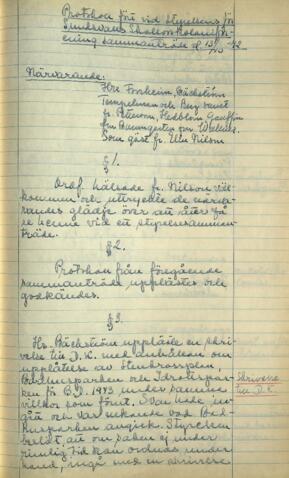 Protokoll fört vid Styrelsens för
Sundsvalls Skollovskoloniför-
ening sammanträde d. 13/10 -42
Närvarande:
Hrr Forsheim, Bäckström
Tempelman och Berg samt
fr. Peterson, Hedblom,
fru Baumgarten
Som gäst fr. Ulla Nilson
§ 1.
Ordf. hälsade fr. Nilson väl-
kommen och uttryckte de närva-
randes glädje över att åter få
se henne vid ett styrelsesamman-
träde.
§ 2.
Protokoll från föregående
sammanträde upplästes och
godkändes.
§ 3.
Hr. Bäckström uppläste en skri-
velse till D. K. med anhållan om
upplåtelse av Stenbrossplan,
Badhusparken och Idrottspar-
ken för B.D. 1943 under samma
villkor som förut. Svar hade in-
gått och var nekande vad Bad-
husparken angick. Styrelsen
beslöt, att om saken ej under
rimlig tid kan ordnas under
hand, ingå med en
Skrivelse
till D.K.